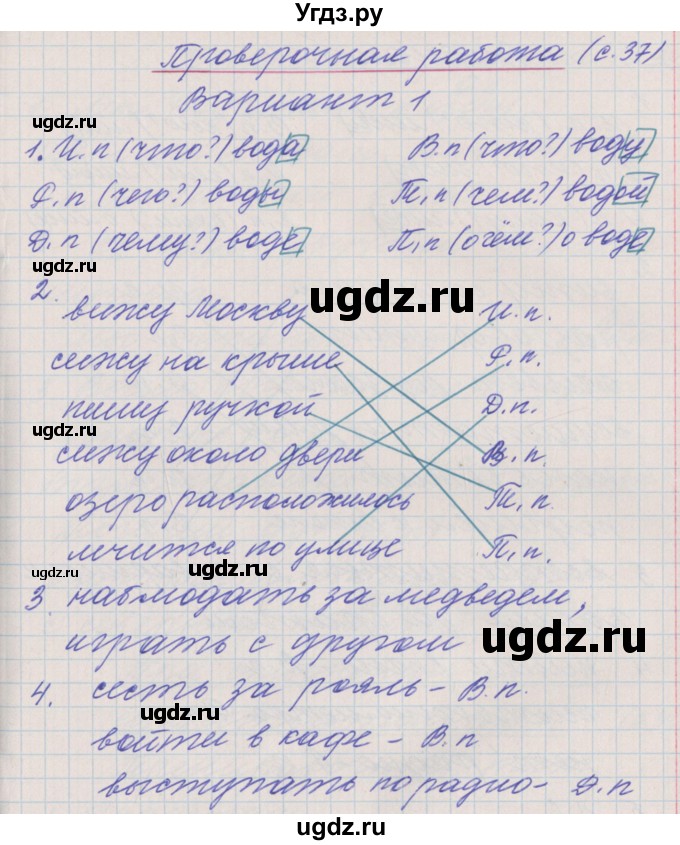 Угдз.ру
Проверочная работа (с.37)
Вариант 1
ugdz.ru
1. И.п (что?) вода В.п (что?) воду
ugdz.ru
Р.п (чего?) воды Т.п (чем?) водой
Д.п (чему?) воде П.п (о чём?) о воде
ugdz.ru
2.
вижу Москву И.п.
ugdz.ru
сижу на крыше Р.п.
пишу ручкой Д.п.
ugdz.ru
сижу около двери В.п.
озеро расположилось Т.п.
мчится по улице П.п.
ugdz.ru ugdz.ru
3. наблюдать за медведем,
играть с другом
ugdz.ru
4. сесть за рояль – В.п.
ugdz.ru
войти в кафе – В.п
выступать по радио – Д.п
ugdz.ru